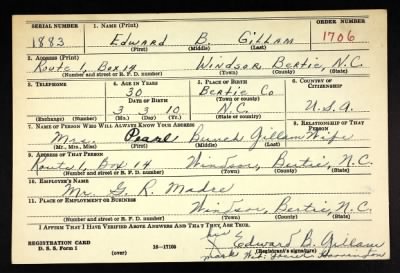 SERIAL NUMBER 1. NAME (Print) ORDER NUMBER
1883 Edward B. Gillam 1706
(First) (Middle) (Last)
2. ADDRESS (Print)
Route 1, Box 14 Windsor, Bertie, N.C.
(Number and street or R. F. D. number) (Town) (County) (State)
3. TELEPHONE 4. AGE IN YEARS 5. PLACE OF BIRTH 6. COUNTRY OF CITIZENSHIP
30 Bertie Co
DATE OF BIRTH (Town or county)
3 3 10 N.C. U.S.A.
(Exchange) (Number) (Mo.) (Day) (Yr.) (State or country)
7. NAME OF PERSON WHO WILL ALWAYS KNOW YOUR ADDRESS 8. RELATIONSHIP OF THAT PERSON
Mrs. Pearl Gillam Wife
(Mr., Mrs., Miss) (First) (Middle) (Last)
9. ADDRESS OF THAT PERSON
Route 1, Box 14 Windsor, Bertie, N.C.
(Number and street or R. F. D. number) (Town) (County) (State)
10. EMPLOYER'S NAME
Mr. G. R.
11. PLACE OF EMPLOYMENT OR BUSINESS
Windsor, Bertie, N.C.
(Number and street or R. F. D. number) (Town) (County) (State)
I AFFIRM THAT I HAVE VERIFIED ABOVE ANSWERS AND THAT THEY ARE TRUE.
his
REGISTRATION CARD Edward B. Gillam
D. S. S. Form 1 (over) 16—17105 (Registrant's signature)
mark Wit.